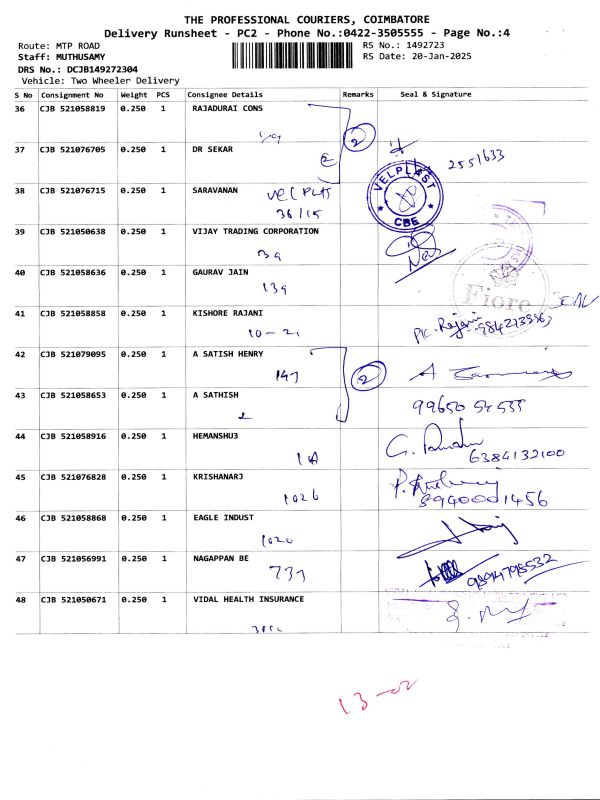 THE PROFESSIONAL COURIERS, COIMBATORE
Delivery Runsheet - PC2 - Phone No.:0422-3505555 - Page No.:4
Route: MTP ROAD RS No.: 1492723
Staff: MUTHUSAMY RS Date: 20-Jan-2025
DRS No.: DCJB149272304
Vehicle: Two Wheeler Delivery
S No Consignment No Weight PCS Consignee Details Remarks Seal & Signature
36 CJB 521058819 0.250 1 RAJADURAI CONS
2
37 CJB 521076705 0.250 1 DR SEKAR 2551633
VELPLAST
38 CJB 521076715 0.250 1 SARAVANAN
36/15
CBE
39 CJB 521050638 0.250 1 VIJAY TRADING CORPORATION
39
40 CJB 521058636 0.250 1 GAURAV JAIN
139
Fiore
41 CJB 521058858 0.250 1 KISHORE RAJANI
10-2
42 CJB 521079095 0.250 1 A SATISH HENRY
147 2
43 CJB 521058653 0.250 1 A SATHISH
99650 54555
44 CJB 521058916 0.250 1 HEMANSHU3
6384132100
45 CJB 521076828 0.250 1 KRISHANARJ
1026 8940001456
46 CJB 521058868 0.250 1 EAGLE INDUST
1020
47 CJB 521056991 0.250 1 NAGAPPAN BE
737
48 CJB 521050671 0.250 1 VIDAL HEALTH INSURANCE
13-02